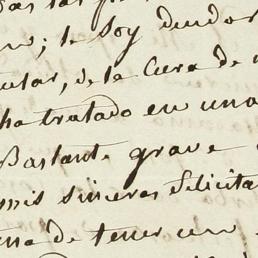 le soy deudor
de la Cura de
ha tratado en una
Bastante grave
mis sinceras felicita
de tener un